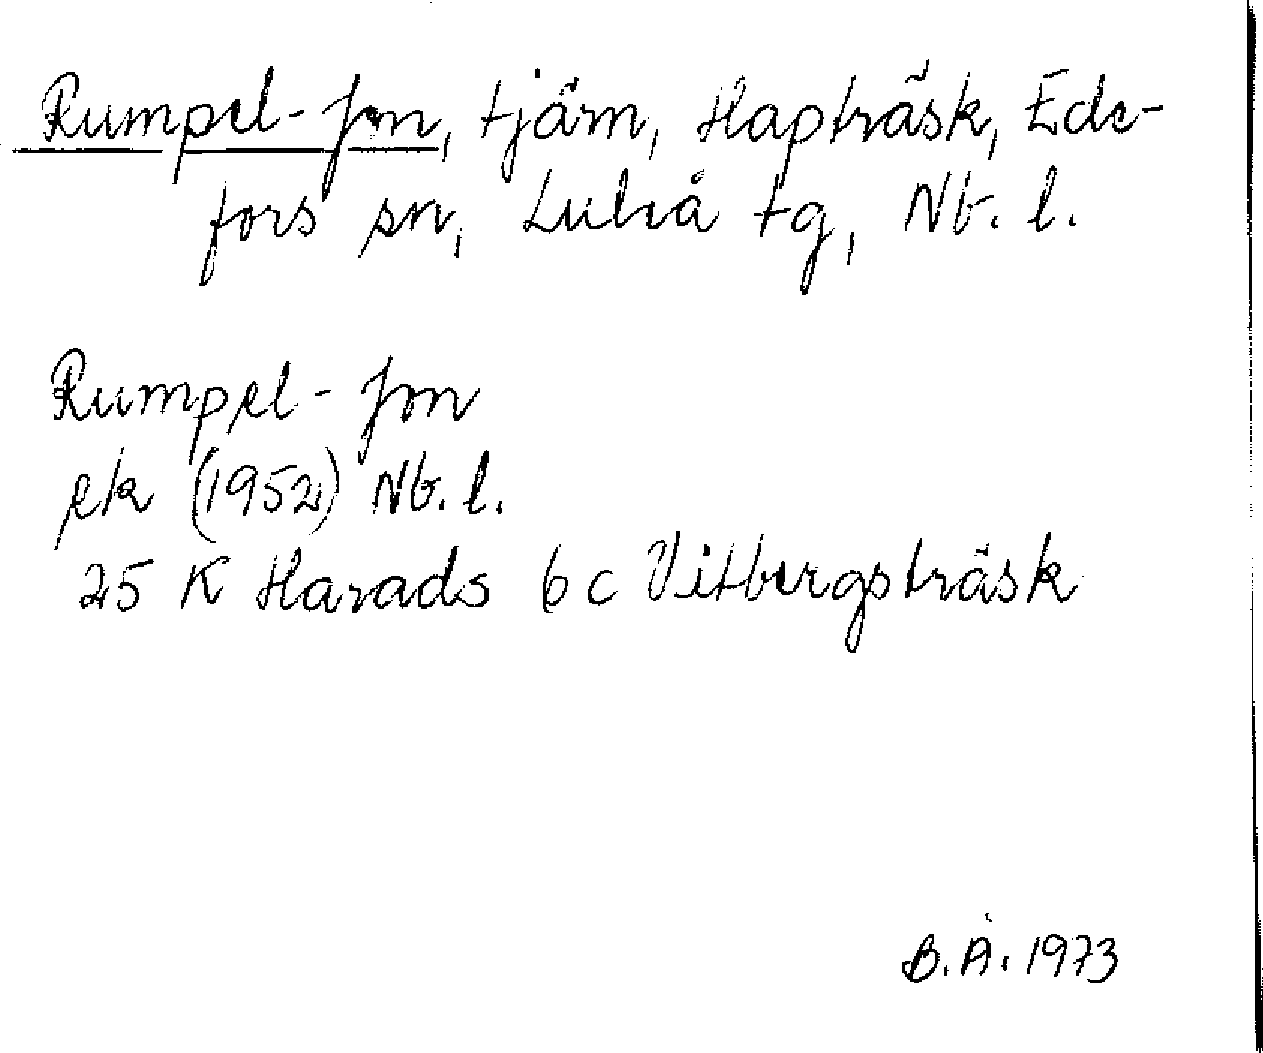 Rumpel-Jon, tjärn, Hapträsk, Ede-
fors sn, Luleå tg, Nb. l.
Rumpel-Jon
ek (1952) Nb. l.
25 K Harads 6c Vitbergsträsk
B. Å. 1973